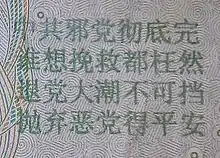 共邪党彻底完
谁想挽救都枉然
退党大潮不可挡
抛弃恶党得平安